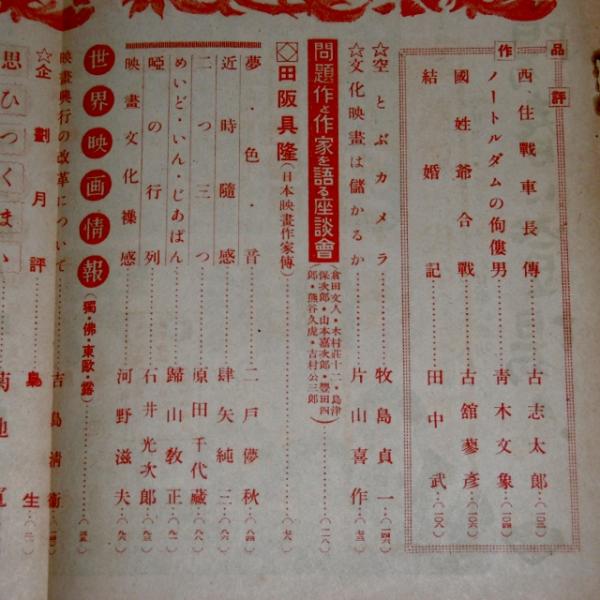 作品評
西住戰車長傳……古志太郎…(一〇二)
ノートルダムの佝僂男……青木文象…(一〇四)
國姓爺合戰……古舘蓼彦…(一〇六)
結婚記……田中武…(一〇八)
☆空とぶカメラ……牧島貞一…(一四六)
☆文化映畫は儲かるか……片山喜作…(七三)
問題作と作家を語る座談會(倉田文人・木村莊十二・島津保次郎・山本嘉次郎・豐田四郎・熊谷久虎・吉村公三郎)…(一一八)
◇田阪具隆(日本映畫作家傳)……(七八)
夢・色・音……二戸儚秋…(八四)
近時隨感……肆矢純三…(八六)
二つ三つ……原田千代藏…(八八)
めいど・いん・じあぱん……歸山敎正
啞の行列……石井光次郎…(九三)
映畫文化襍感……河野滋夫…(九六)
世界映画情報(獨・佛・東歐・露)
映畫興行の改革について……吉島淸衞
☆企劃月評……島生
思ひつくまゝ……菊池寛